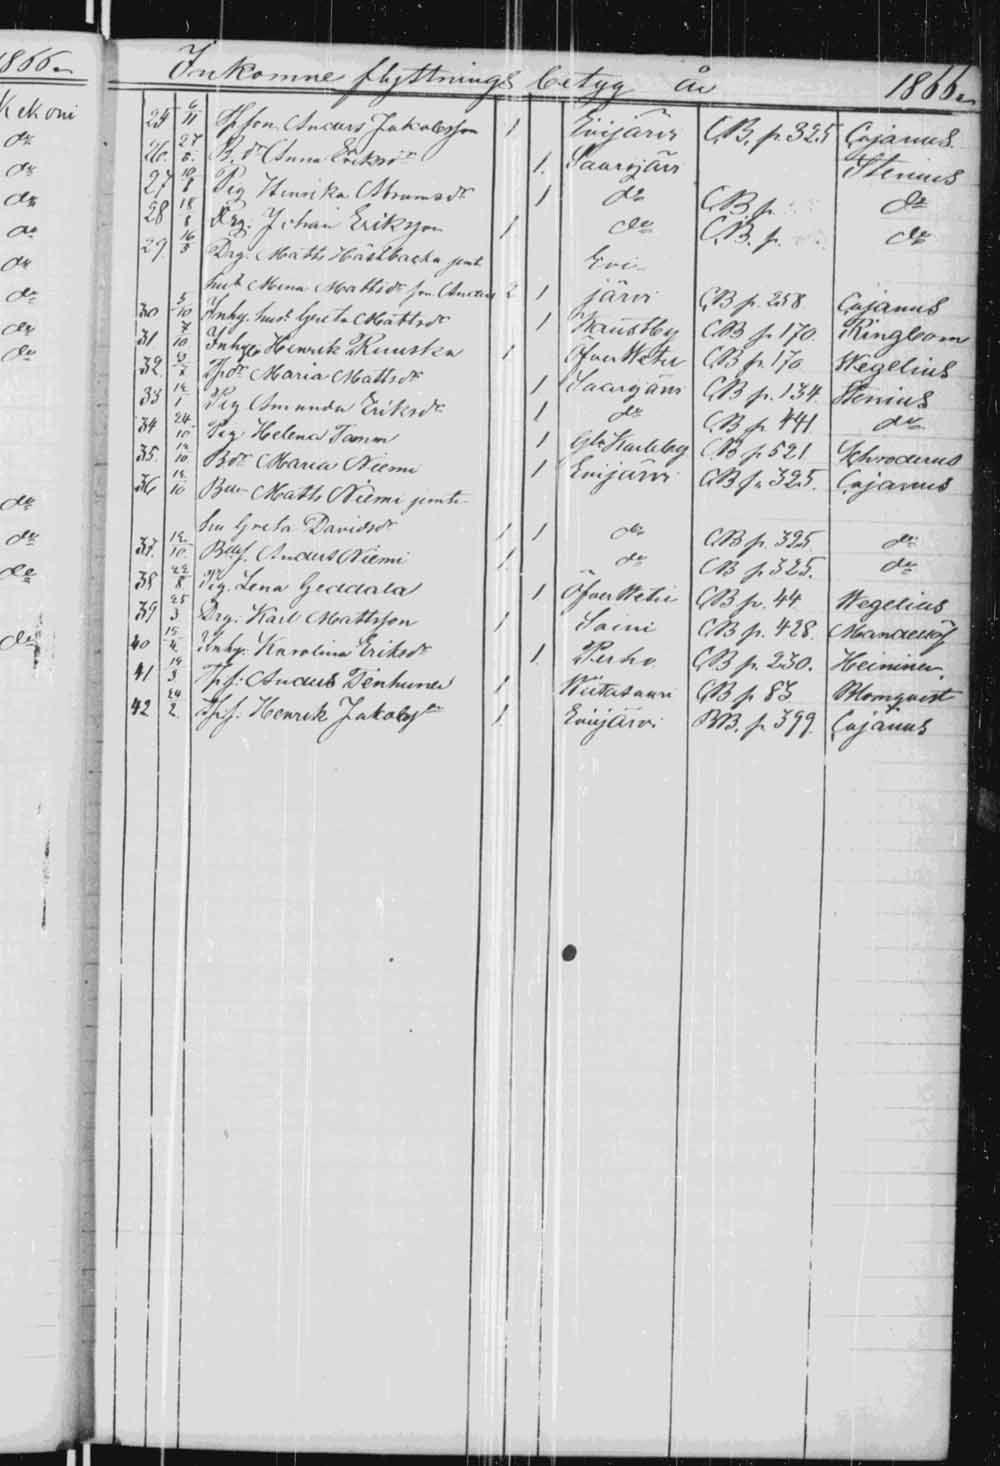 1866.
Kekoni
do
do
do
do
do
do
do
do
do
do
do
do
Inkomne flyttnings betyg år 1866.
25 6/11 Tpson Anders Jakobsson 1 Evijärvi CB. p. 325 Cajanus
26. 27 B. dr Anna Eriksdr 1. Saarijärvi Stenius
27 10 Pig Henrika Abramsdr 1 do CB p do
28 18 Drg. Johan Eriksson 1 do CB. p. do
29. 16/3 Drg. Matts Hästbacka jemte Evi-
hust Mina Mattsdr son Anders 2 1 järvi CB p. 258 Cajanus
30 5/10 Inhy. hust Greta Mattsdr 1 Kaustby CB p. 170. Ringbom
31 7/10 Inhyg Henrik Ruuska 1 Öfver Wetil CB p. 170 Wegelius
32. Tpdr Maria Mattsdr 1 Saarijärvi CB p. 134. Stenius
33 Pig Amanda Eriksdr 1 do CB p 441 do
34 24/10 Pig Helena Tamm 1 Gla Karleby CB p 521 Schroderus
35. 12/10 Bdr Maria Niemi 1 Evijärvi CB p. 325. Cajanus
36 12/10 Bdn Matts Niemi jemte
hu Greta Davidsdr 1 1 do CB p. 325 do
37. 12/10. Anders Niemi 1. do CB p 325. do
38 22/8 Pig. Lena Geddala 1 Öfver Wetil CB p. 44 Wegelius
39 25/3 Drg. Karl Mattsson 1 Soini CB p. 428. Mandellöf
40 15/4. Inhy. Karolina Eriksdr 1. Perho CB p. 230. Heininen
41 19/3 Tpf. Anders Tenhunen 1 Wiitasaari CB p 83 Blomqvist
42 24/2 Tpf. Henrik Jakobs 1 Evijärvi BB. p. 399. Cajanus